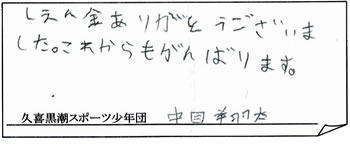 しえん金ありがとうございま
した。これからもがんばります。
久喜黒潮スポーツ少年団 中田